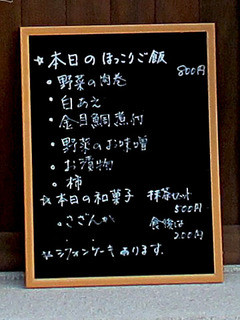 ☆本日のほっこりご飯
800円
・野菜の肉巻
・白あえ
・金目鯛煮付
・野菜のお味噌
・お漬物
・柿
☆本日の和菓子 抹茶セット
500円
・さざんか 食後は
200円
☆シフォンケーキあります。